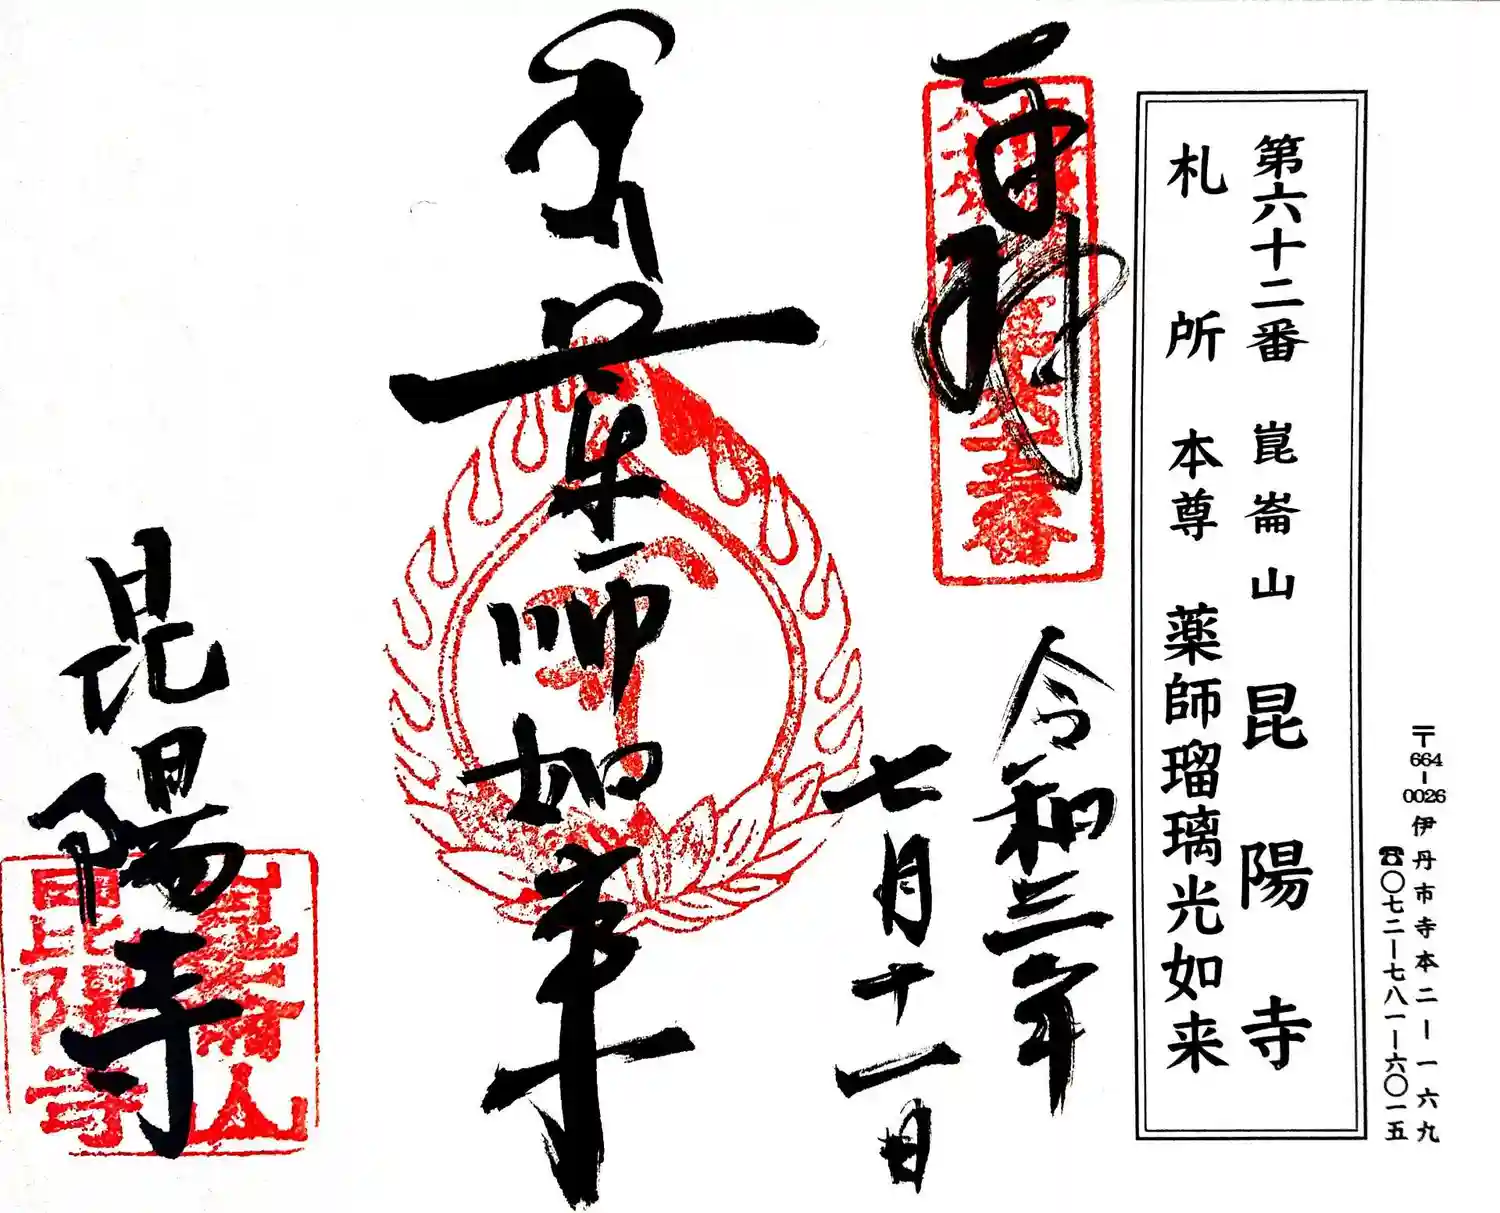 〒664-0026 伊丹市寺本二-一六九
☎〇七二-七八一-六〇一五
第六十二番 崑崙山 昆陽寺
札所本尊 薬師瑠璃光如来
奉拝
令和三年
七月十一日
薬師如来
昆陽寺
崑崙山
昆陽寺